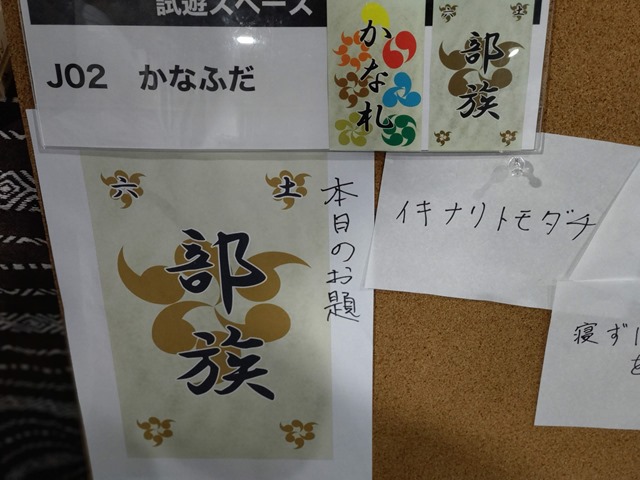 試遊スペース
J02 かなふだ
かな札
六 土
部族
六 土
部族
本日のお題
イキナリトモダチ
寝ず
を